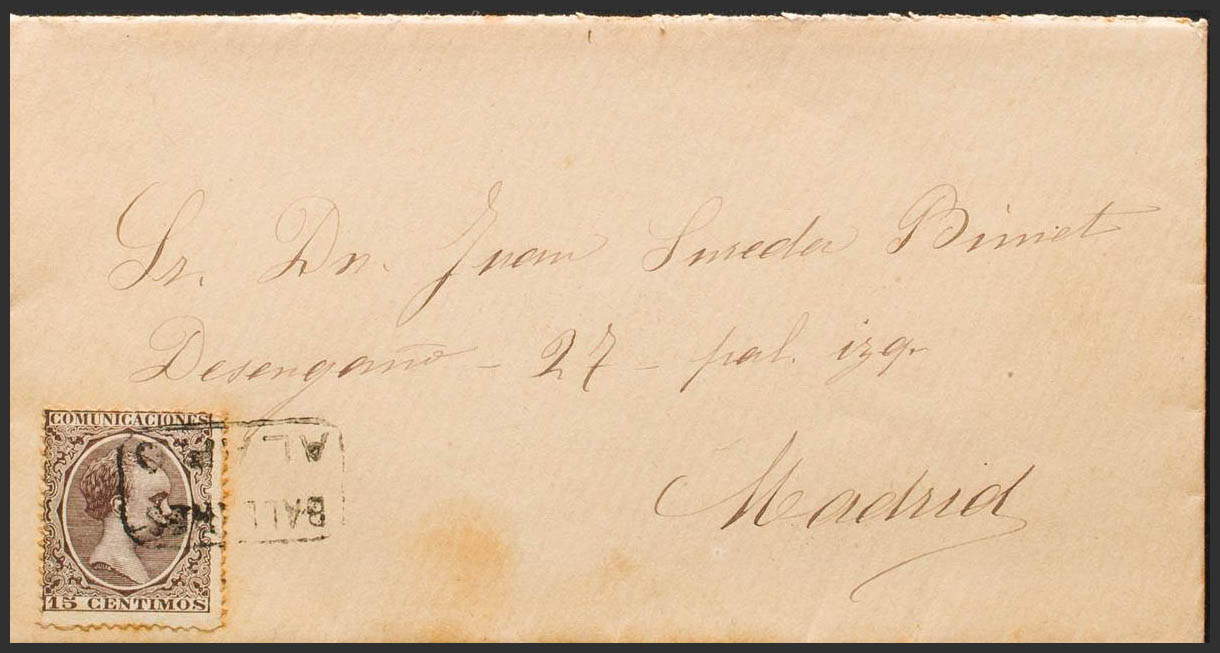 Sr. Dn. Juan Sureda Bimet
Desengaño - 27 - pal. izq.
Madrid
COMUNICACIONES
15 CENTIMOS